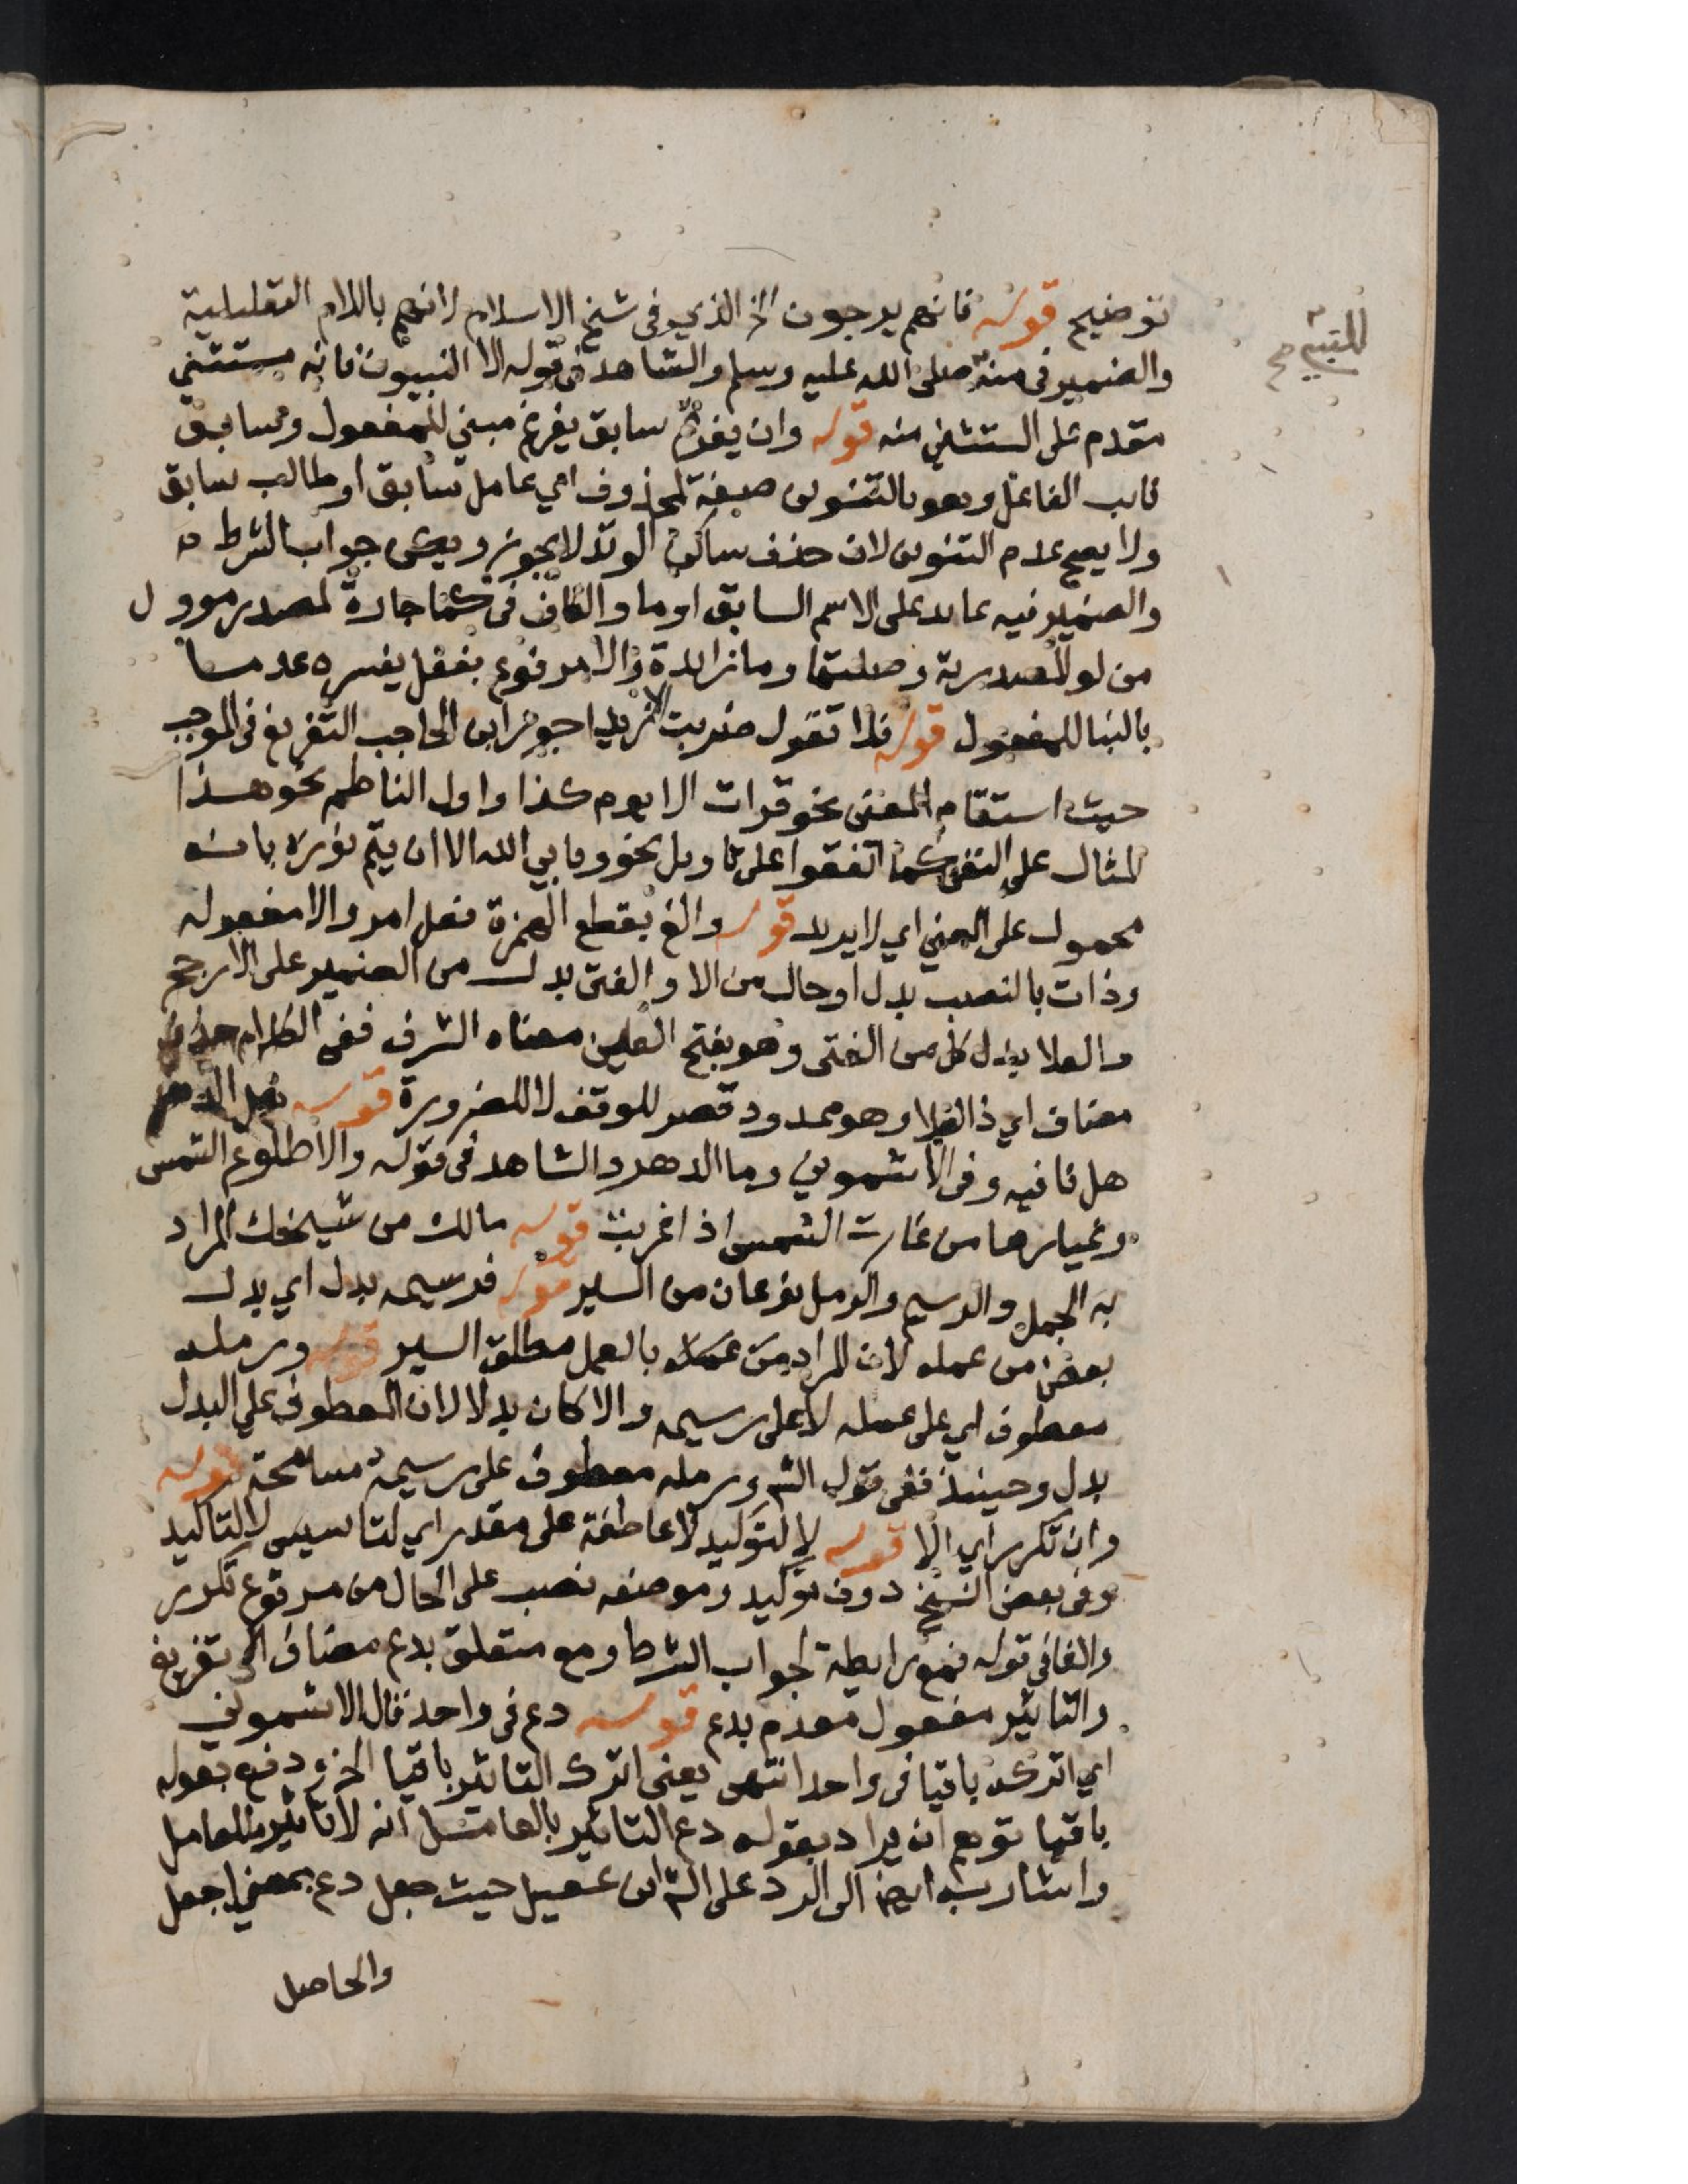 توضيح قوله فانهم يرجون الخ الذي في شيخ الاسلام لانهم باللام التعليلية
والضمير في منه صلى الله عليه وسلم والشاهد في قوله الا النبيون فانه مستثني
مقدم على المستثني منه قوله وان يفرغ سابق يفرغ مبني للمفعول وسابق
نايب الفاعل وهو بالتنوين صفة لمحذوف اي عامل سابق او طالب سابق
ولا يصح عدم التنوين لان حذف ساكن الوتد لا يجوز ويكن جواب الشرط
والضمير فيه عايد على الاسم السابق او ما والكاف في كما جارة لمصدر موول
من لو المصدرية وصلتها وما زايدة والا مرفوع بفعل يفسره عدما
بالبنا للمفعول قوله فلا تقول ضربت الا زيدا جوز ابن الحاجب التفريغ في الموجب
حيث استقام المعنى نحو قرات الا يوم كذا واول الناظم نحو هذا
المثال على النفي كما اتفقوا على تاويل نحو ويابي الله الا ان يتم نوره بانه
محمول على المعني اي لا يريد قوله والغ بقطع الهمزة فعل امر والا مفعوله
وذات بالنصب بدل او حال من الا والفتى بدل من الضمير على الارجح
والعلا بدل كل من الفتى وهو بفتح العين معناه الشرف ففي الكلام حذف
مضاف اي ذا العلا وهو ممدود قصر للوقف لا للضرورة قوله هل الدهر
هل نافيه وفي الاشموني وما الدهر والشاهد في قوله والا طلوع الشمس
وغيارها من غارت الشمس اذا غربت قوله مالك من شيخك المراد
به الجمل والرسيم والرمل نوعان من السير قوله فرسيمه بدل اي بدل
بعض من عمله لان المراد من عمله بالعمل مطلق السير قوله ورمله
معطوف اي على عمله لا على رسيمه والا كان بدلا لان المعطوف علي البدل
بدل وحينئذ ففي قول الش ورمله معطوف على رسيمه مسامحة قوله
وان تكرر اي الا قوله لا لتوكيد لا عاطفة على مقدر اي لتاسيس لا لتاكيد
وفي بعض النسخ دون توكيد وموضعه نصب على الحال من مرفوع تكرر
والفا في قوله فمع رابطة لجواب الشرط ومع متعلق بدع مضاف الى تفريغ
والتاثير مفعول مقدم بدع قوله دع في واحد قال الاشموني
اي اتركه باقيا في واحد انتهى يعني اترك التاثير باقيا الخ ودفع بقوله
باقيا توهم ان يراد بقوله دع التاثير بالعامل انه لا تاثير للعامل
واشار به ايضا الى الرد على الش ابن عقيل حيث جعل دع بمعني اجعل
والحاصل